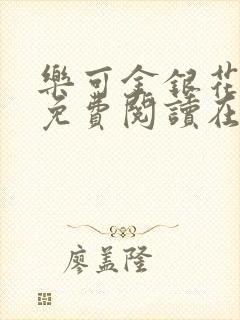 樂可金銀花
免費閱讀在
廖盖隆